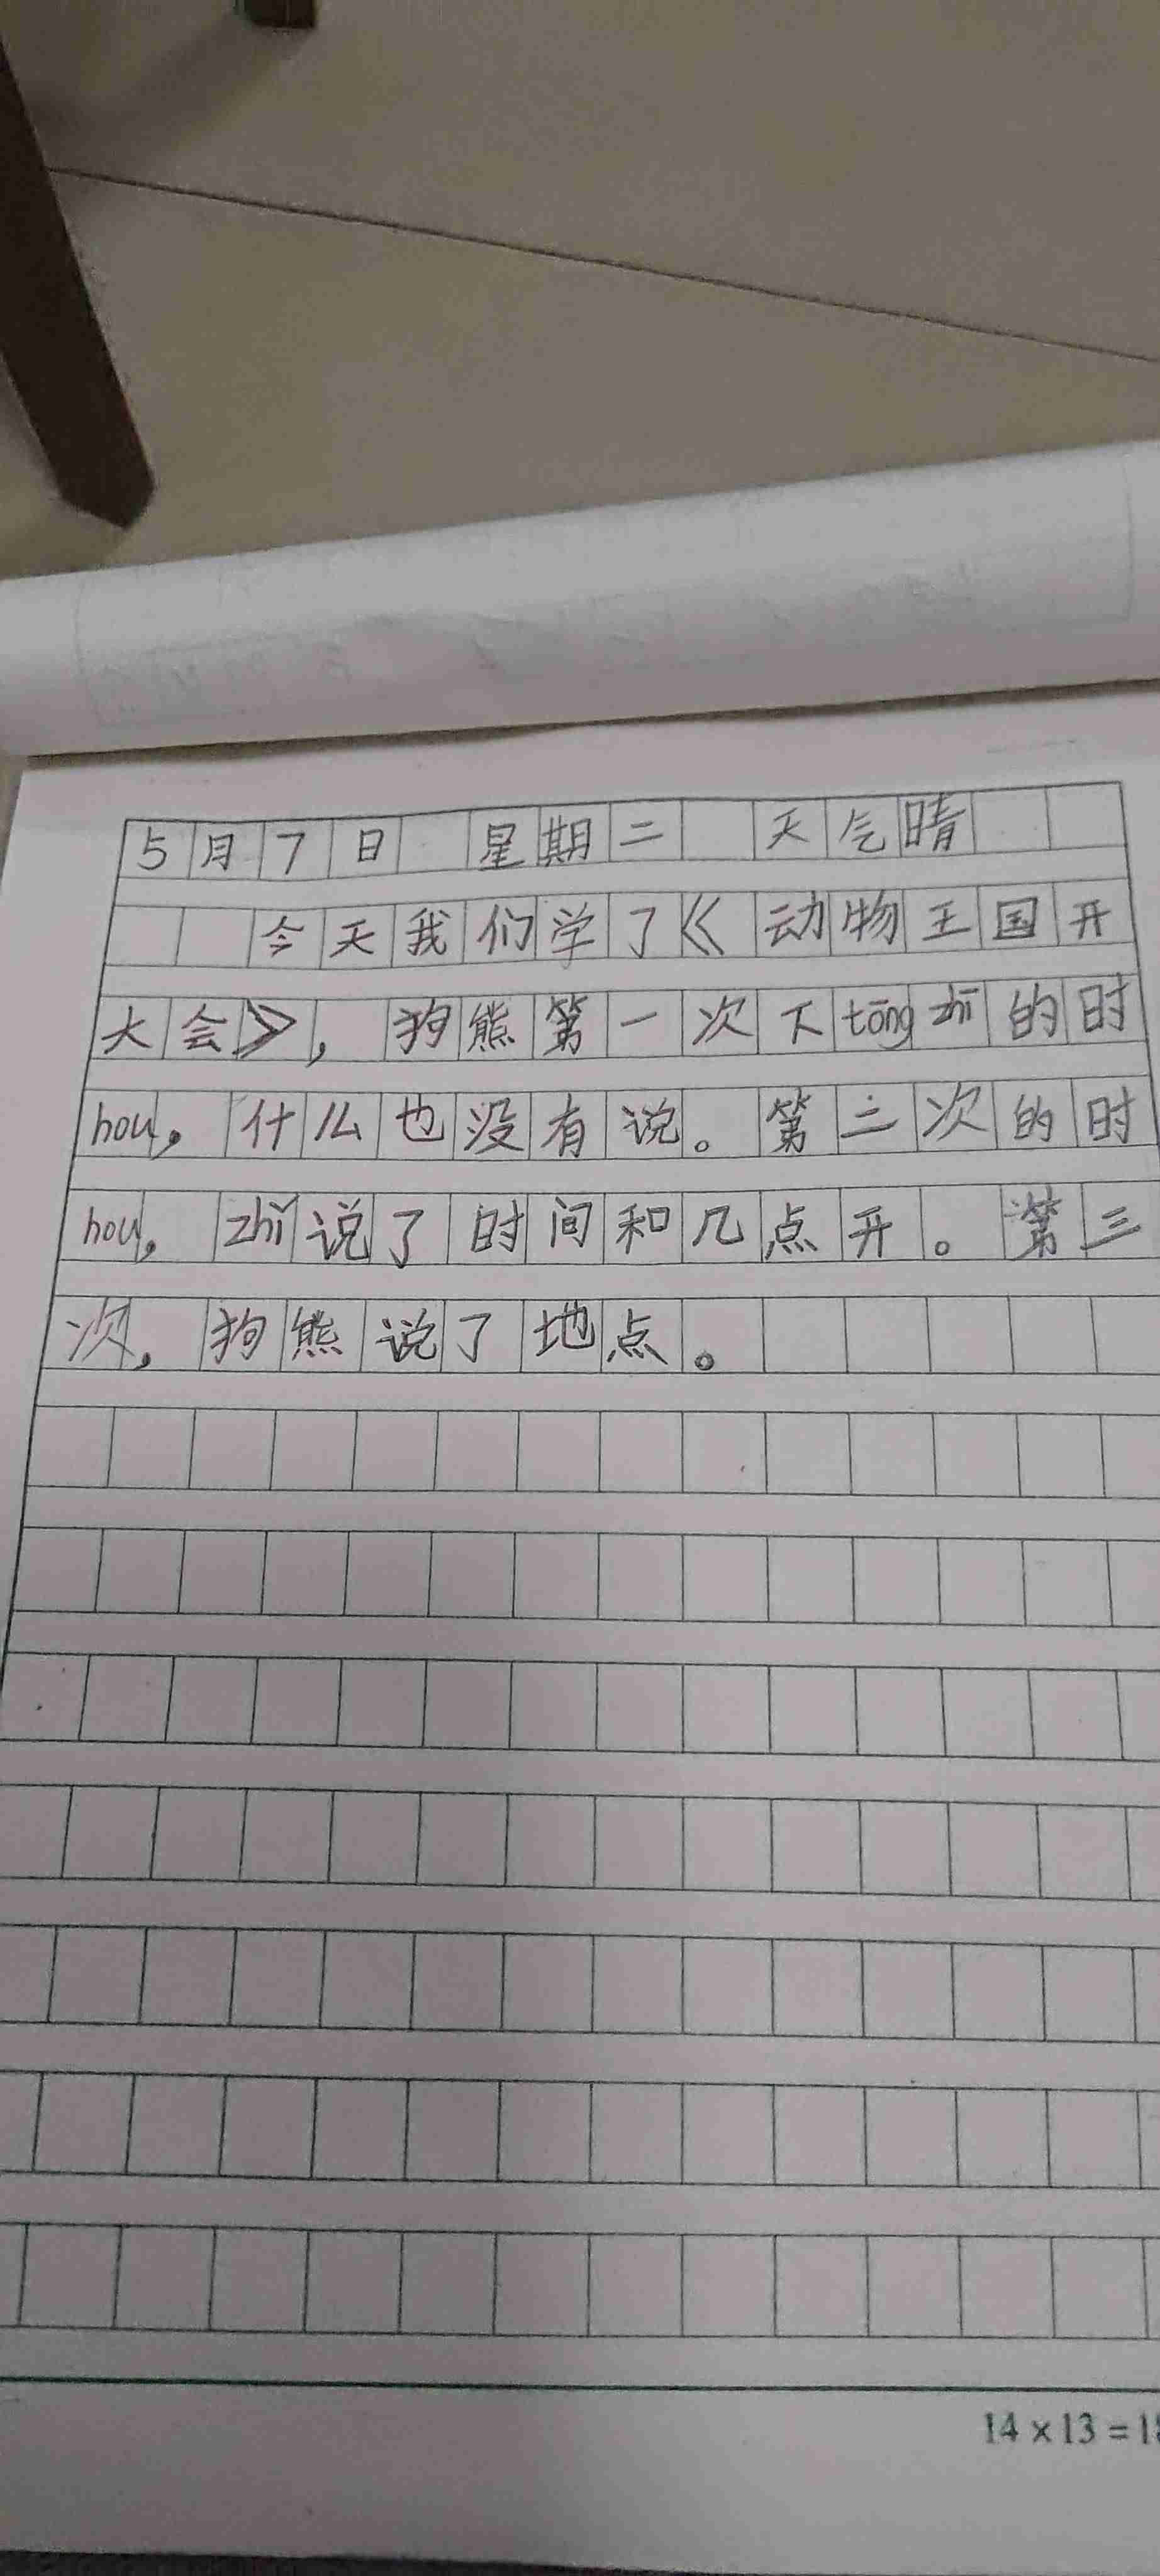 5月7日 星期二 天气晴
今天我们学了《动物王国开
大会》，狗熊第一次下tōng zhī的时
hou，什么也没有说。第二次的时
hou，zhǐ说了时间和几点开。第三
次，狗熊说了地点。
14×13=18